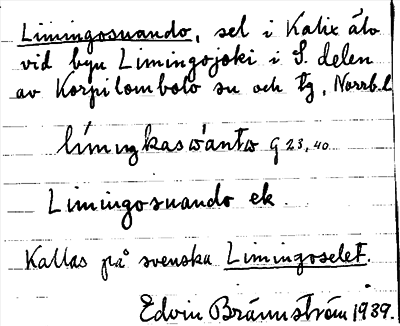 Limingosuando, sel i Kalix älv
vid byn Limingojoki i S. delen
av Korpilombolo sn och tg, Norrb.l
G 23,40
Limingosuando ek.
Kallas på svenska Limingoselet.
Edvin Brännström 1939.